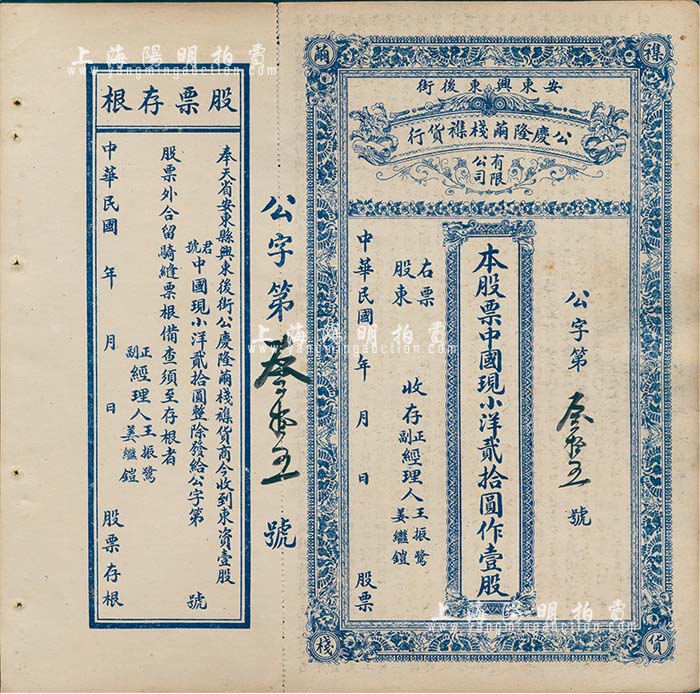 上海陽明拍賣
www.yangmingauction.com
禩
繭
貨
棧
安東興東後街
公慶隆繭棧禩貨行
有限公司
公字第叁拾五號
本股票中國現小洋貳拾圓作壹股
右票
股東
收存
正副經理人王振鷺姜繼鎧
中華民國 年 月 日 股票
公字第叁拾五號
股票存根
奉天省安東縣興東後街公慶隆繭棧禩貨商今收到東資壹股
君號中國現小洋貳拾圓整除發給公字第 號
股票外合留騎縫票根備查須至存根者
正副經理人王振鷺姜繼鎧
中華民國 年 月 日 股票存根
上海陽明拍賣
www.yangmingauction.com
上海陽明拍賣
www.yangmingauction.com